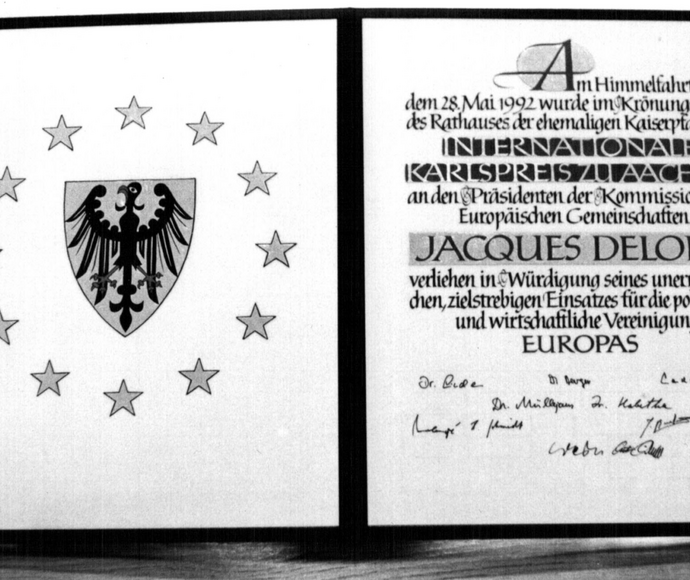 Am Himmelfahrt
dem 28. Mai 1992 wurde im Krönung
des Rathauses der ehemaligen Kaiserpfa
INTERNATIONALE
KARLSPREIS ZU AACH
an den Präsidenten der Kommissio
Europäischen Gemeinschaften
JACQUES DELO
verliehen in Würdigung seines uner
chen, zielstrebigen Einsatzes für die po
und wirtschaftliche Vereinigun
EUROPAS
Dr.
Dr.